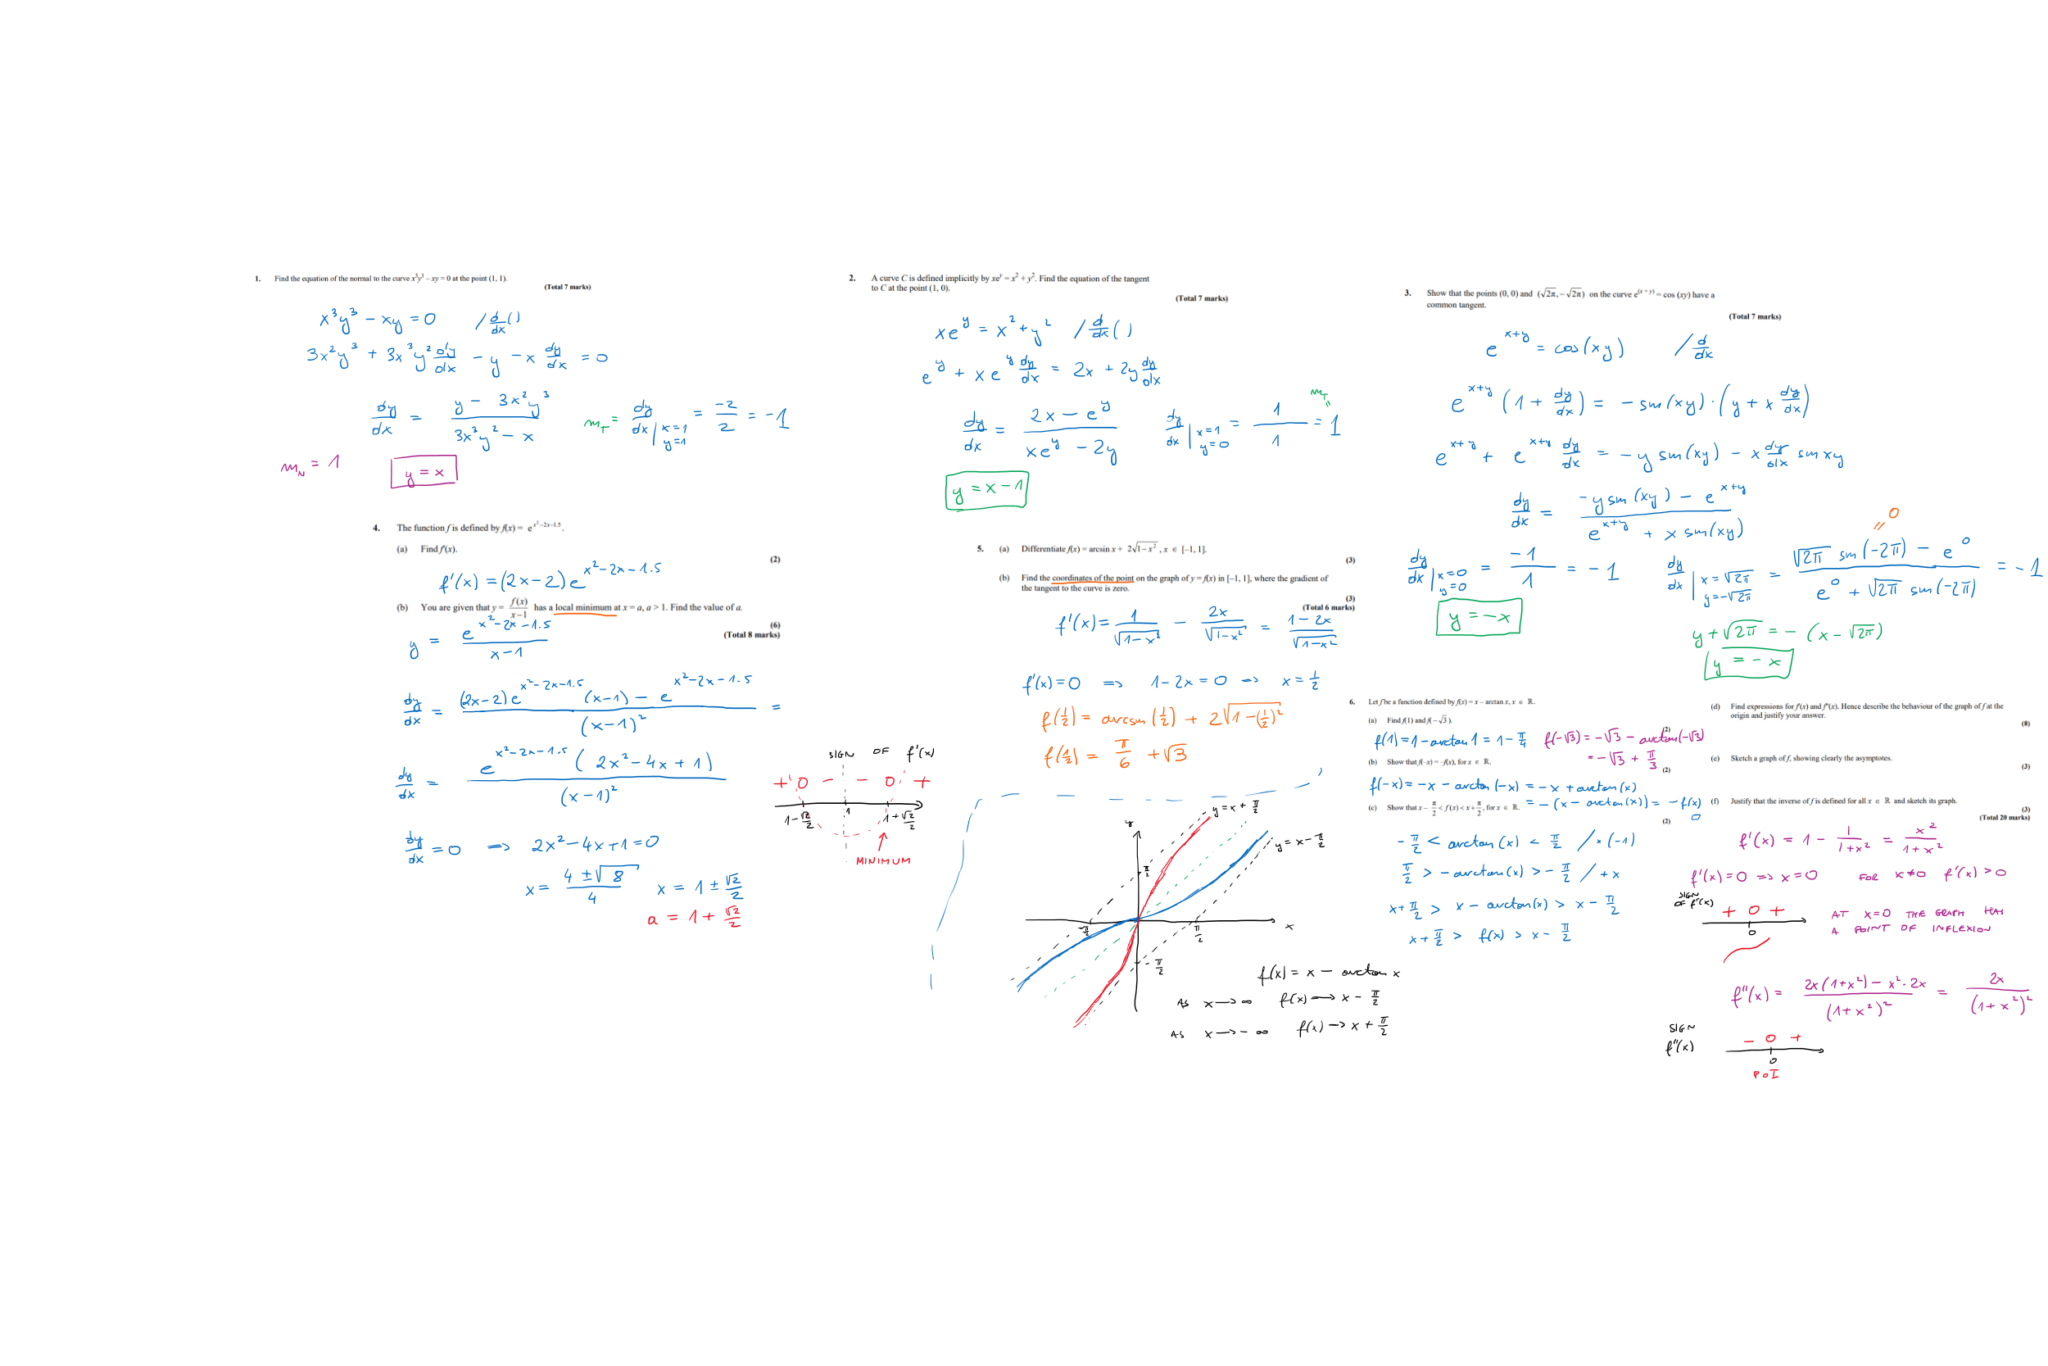 1. Find the equation of the normal to the curve x³y³ – xy = 0 at the point (1, 1).
(Total 7 marks)
x³y³ – xy = 0 /d/dx()
3x²y³ + 3x³y² dy/dx – y – x dy/dx = 0
dy/dx = (y – 3x²y³)/(3x³y² – x)
m_T = dy/dx | x=1 y=1 = –2/2 = –1
m_N = 1
y = x
2. A curve C is defined implicitly by xe^y = x² + y². Find the equation of the tangent
to C at the point (1, 0).
(Total 7 marks)
xe^y = x² + y² /d/dx()
e^y + xe^y dy/dx = 2x + 2y dy/dx
dy/dx = (2x – e^y)/(xe^y – 2y)
dy/dx | x=1 y=0 = 1/1 = 1
m_T
y = x – 1
3. Show that the points (0, 0) and (√2π, –√2π) on the curve e^(x + y) = cos (xy) have a
common tangent.
(Total 7 marks)
e^(x+y) = cos(xy) /d/dx
e^(x+y) (1 + dy/dx) = – sin(xy) · (y + x dy/dx)
e^(x+y) + e^(x+y) dy/dx = – y sin(xy) – x dy/dx sin xy
dy/dx = (– y sin(xy) – e^(x+y))/(e^(x+y) + x sin(xy))
dy/dx | x=0 y=0 = –1/1 = –1
y = –x
0
=
dy/dx | x=√2π y=–√2π = (√2π sin(–2π) – e⁰)/(e⁰ + √2π sin(–2π)) = –1
y + √2π = – (x – √2π)
y = – x
4. The function f is defined by f(x) = e^(x²–2x–1.5).
(a) Find f'(x).
(2)
f'(x) = (2x–2) e^(x²–2x–1.5)
(b) You are given that y = f(x)/(x–1) has a local minimum at x = a, a > 1. Find the value of a.
(6)
(Total 8 marks)
y = e^(x²–2x–1.5)/(x–1)
dy/dx = ((2x–2)e^(x²–2x–1.5) (x–1) – e^(x²–2x–1.5))/(x–1)² =
dy/dx = e^(x²–2x–1.5) (2x²–4x+1)/(x–1)²
dy/dx = 0 => 2x²–4x+1=0
x = (4 ±√8)/4 x = 1 ± √2/2
a = 1 + √2/2
SIGN OF f'(x)
+ 0 – – 0 +
1–√2/2 1 1+√2/2
MINIMUM
5. (a) Differentiate f(x) = arcsin x + 2√(1–x²), x ∈ [–1, 1].
(3)
(b) Find the coordinates of the point on the graph of y = f(x) in [–1, 1], where the gradient of
the tangent to the curve is zero.
(3)
(Total 6 marks)
f'(x) = 1/√(1–x²) – 2x/√(1–x²) = (1–2x)/√(1–x²)
f'(x)=0 => 1–2x = 0 => x = 1/2
f(1/2) = arcsin(1/2) + 2√(1–(1/2)²)
f(1/2) = π/6 + √3
6. Let f be a function defined by f(x) = x – arctan x, x ∈ ℝ.
(a) Find f(1) and f(–√3).
(2)
f(1) = 1 – arctan 1 = 1 – π/4 f(–√3) = –√3 – arctan(–√3)
= –√3 + π/3
(b) Show that f(–x) = –f(x), for x ∈ ℝ.
(2)
f(–x) = –x – arctan(–x) = –x + arctan(x)
= – (x – arctan(x)) = – f(x)
(c) Show that x – π/2 < f(x) < x + π/2, for x ∈ ℝ.
(2)
–π/2 < arctan(x) < π/2 / ·(–1)
π/2 > – arctan(x) > – π/2 / +x
x+π/2 > x – arctan(x) > x – π/2
x+π/2 > f(x) > x – π/2
(d) Find expressions for f'(x) and f"(x). Hence describe the behaviour of the graph of f at the
origin and justify your answer.
(8)
(e) Sketch a graph of f, showing clearly the asymptotes.
(3)
(f) Justify that the inverse of f is defined for all x ∈ ℝ and sketch its graph.
(3)
(Total 20 marks)
f'(x) = 1 – 1/(1+x²) = x²/(1+x²)
f'(x)=0 => x=0 FOR x≠0 f'(x) > 0
SIGN
OF f'(x)
+ 0 +
0
AT x=0 THE GRAPH HAS
A POINT OF INFLEXION
f"(x) = (2x(1+x²) – x²·2x)/(1+x²)² = 2x/(1+x²)²
SIGN
f"(x)
– 0 +
0
POI
y = x + π/2
y
y = x – π/2
π/2
–π/2
π/2
x
–π/2
f(x) = x – arctan x
AS x → ∞ f(x) → x – π/2
AS x → – ∞ f(x) → x + π/2